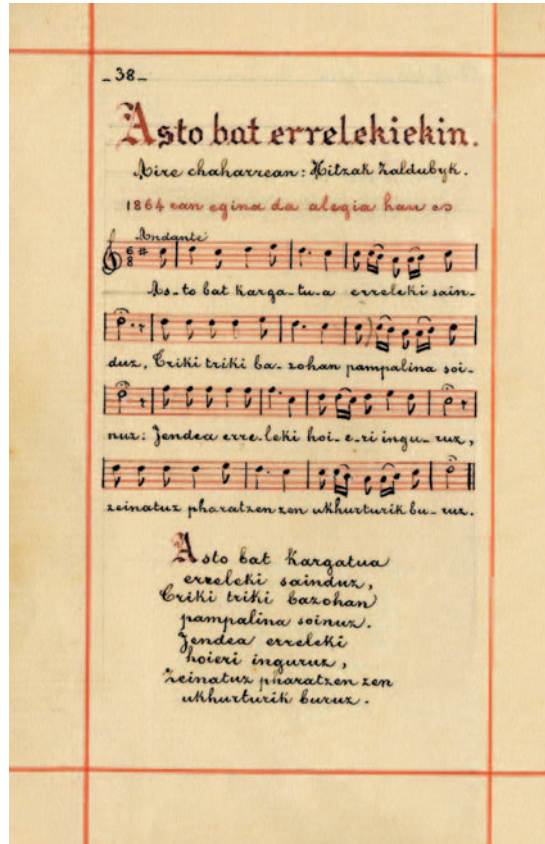 _38_
Asto bat errelekiekin.
Aire chaharrean: Hitzak Zaldubyk.
1864 ean egina da alegia hau es
Andante
6
8
As-to bat karga-tu-a erreleki sain-
duz, Triki triki ba-zohan pampalina soi-
nuz: Jendea erre-leki hoi-e-ri ingu-ruz,
zeinatuz pharatzen zen ukhurturik bu-ruz.
Asto bat kargatua
erreleki sainduz,
Triki triki bazohan
pampalina soinuz.
Jendea erreleki
hoieri inguruz,
Zeinatuz pharatzen zen
ukhurturik buruz.